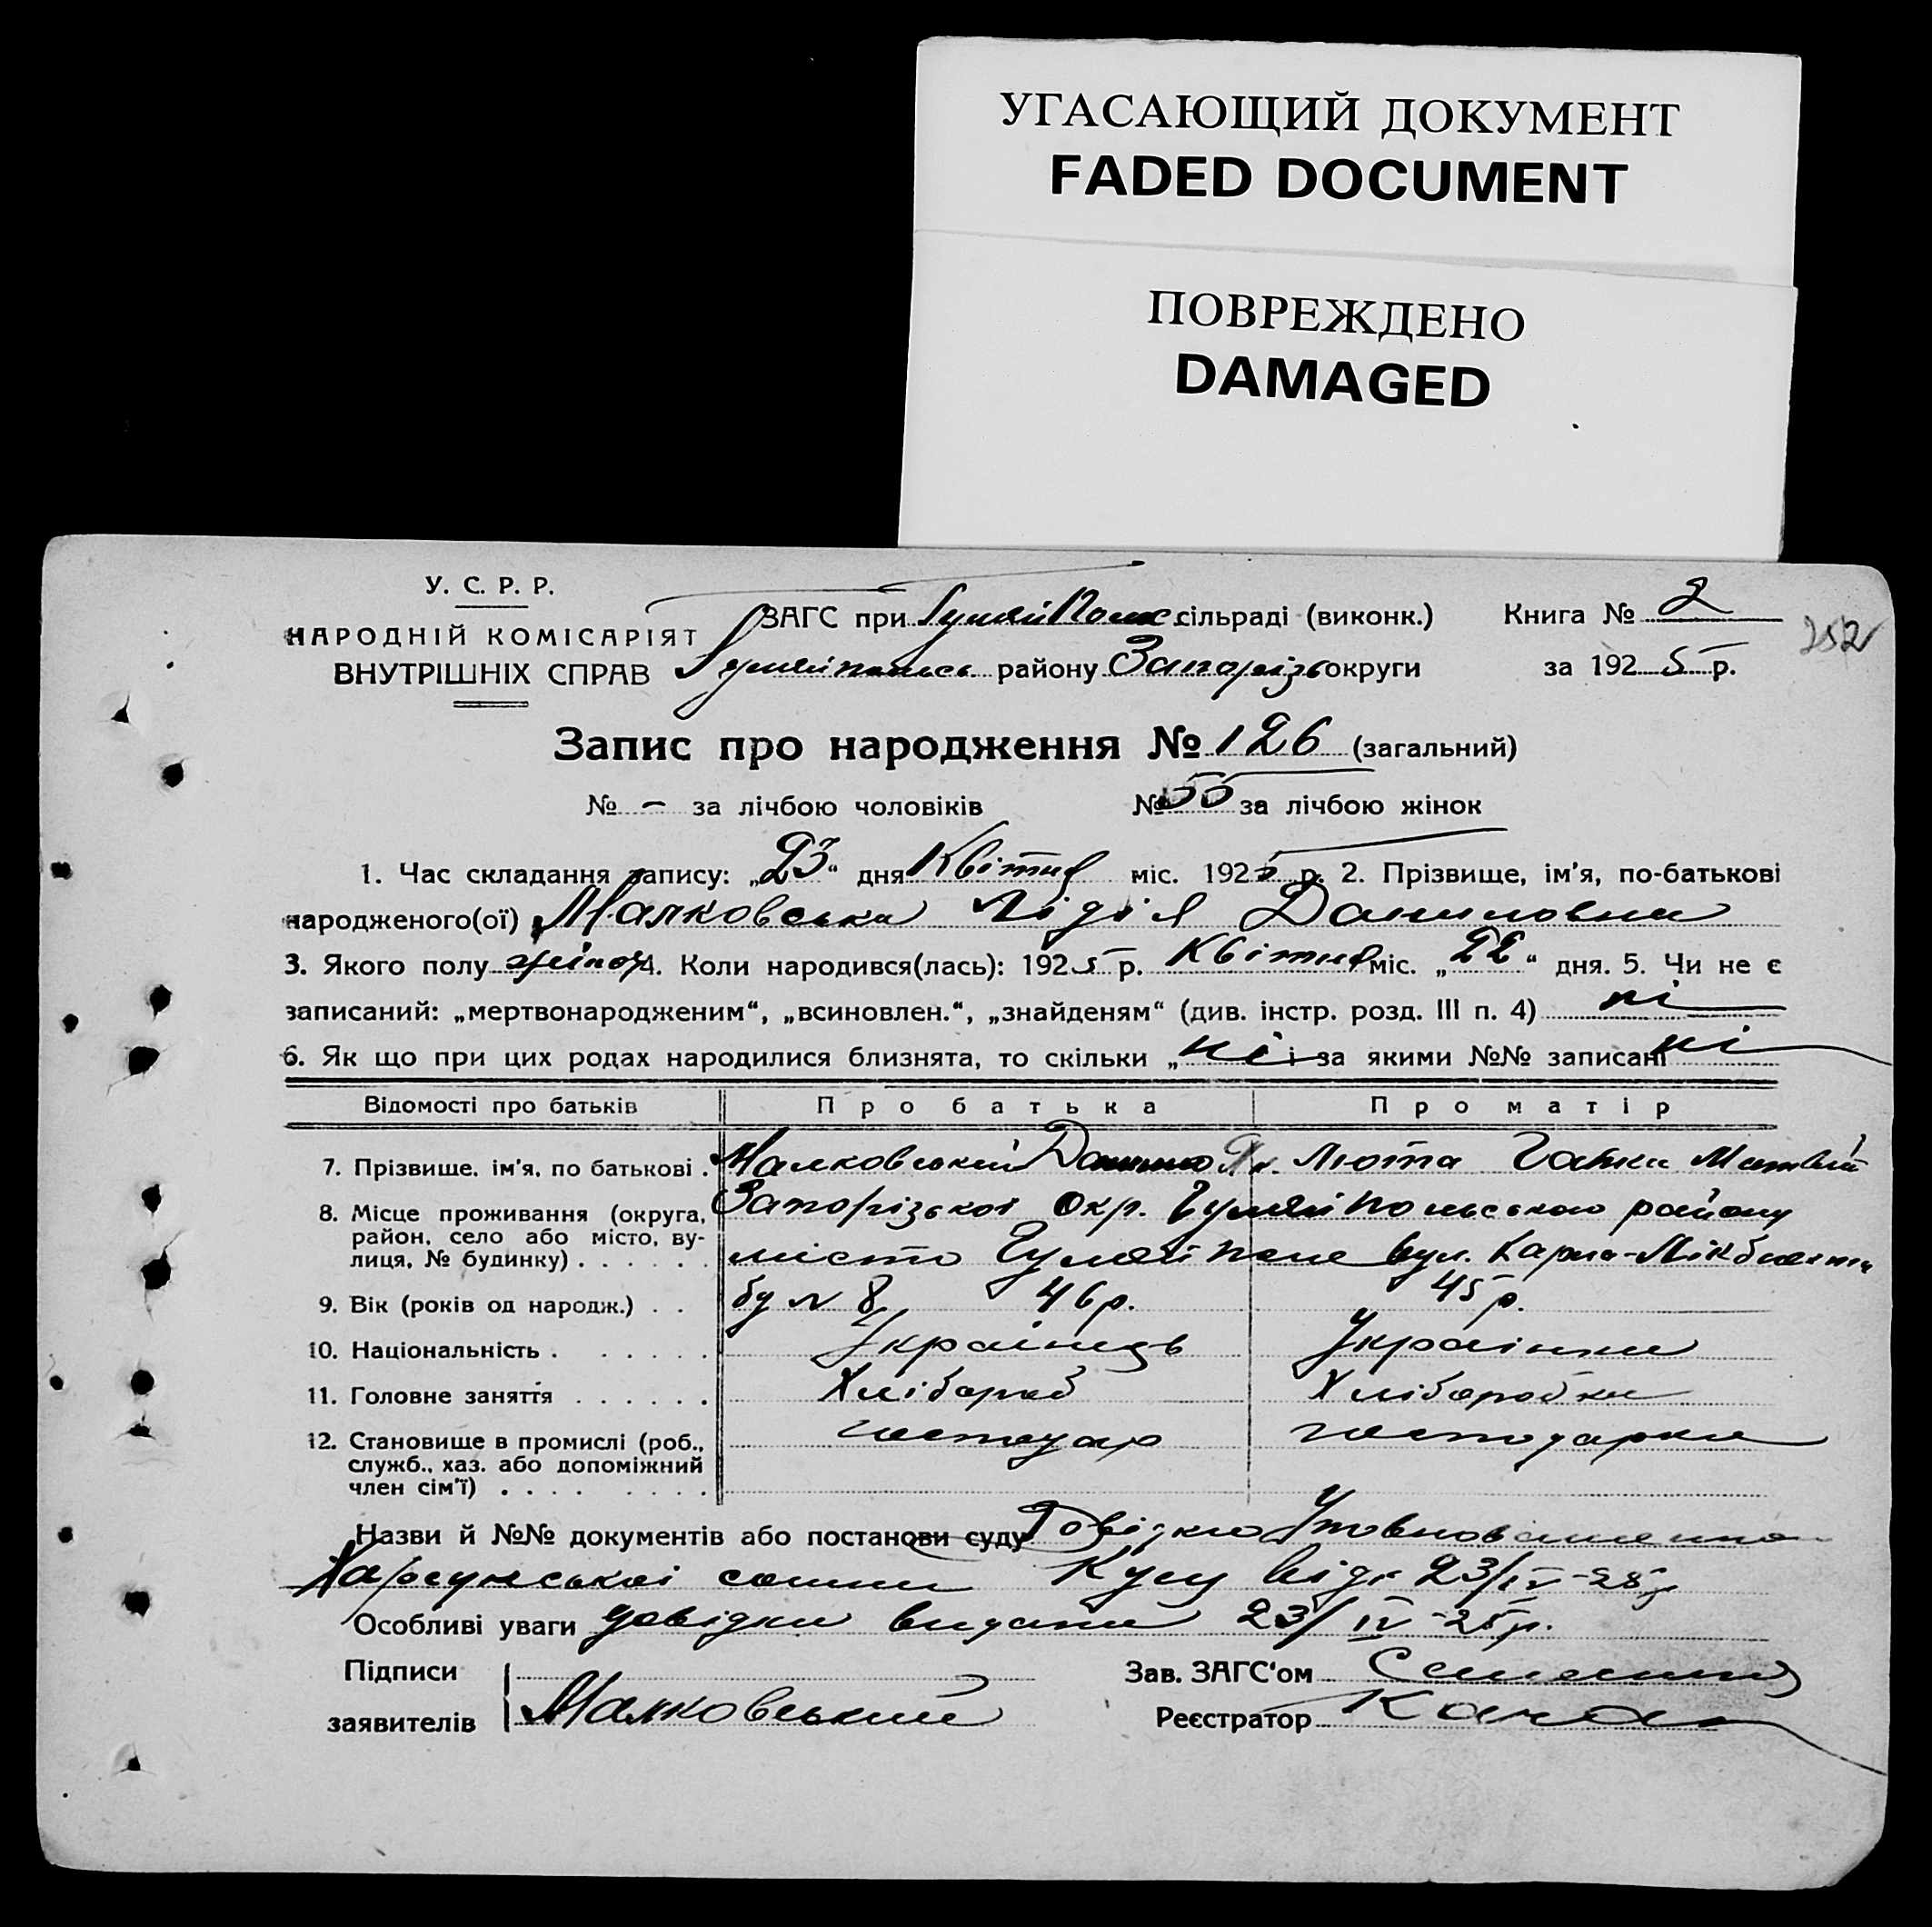 УГАСАЮЩИЙ ДОКУМЕНТ
FADED DOCUMENT
ПОВРЕЖДЕНО
DAMAGED
У. С. Р. Р.
НАРОДНІЙ КОМІСАРІЯТ
ВНУТРІШНІХ СПРАВ
ЗАГС при ГуляйПольс сільраді (виконк.)
Гуляйпольсь району Запорізь округи
Книга № 2
за 1925 р.
252
Запис про народження № 126 (загальний)
№ - за лічбою чоловіків № 55 за лічбою жінок
1. Час складання запису: „23“ дня Квітня міс. 1925 р. 2. Прізвище, ім'я, по-батькові
народженого(ої) Малковська Лідія Даниловна
3. Якого полу жіноч 4. Коли народився(лась): 1925 р. Квітня міс. „22“ дня. 5. Чи не є
записаний: „мертвонародженим“, „всиновлен.“, „знайденям“ (див. інстр. розд. III п. 4) ні
6. Як що при цих родах народилися близнята, то скільки „ ні і за якими №№ записані ні
Відомості про батьків Про батька Про матір
7. Прізвище, ім'я, по батькові . Малковський Данило Люта Ганна Матвіїв
8. Місце проживання (округа, Запорізької Окр. Гуляйпольського району
район, село або місто, ву-
лиця, № будинку) . . . . . . місто Гуляйполе вул. Карла-Лікбнехта
9. Вік (років од народж.) . . бу № 8 46 р. 45 р.
10. Національність . . . . . . Українець Українка
11. Головне заняття . . . . . . Хлібороб Хліборобка
12. Становище в промислі (роб., господар господарка
служб., хаз. або допоміжний
член сім'ї) . . . . . . . .
Назви й №№ документів або постанови суду Довідка Уповноваженно
Харсунської сотни Кущ від 23/IV-25р
Особливі уваги довідка видана 23/IV-25р.
Підписи
заявителів Малковський
Зав. ЗАГС'ом
Реєстратор